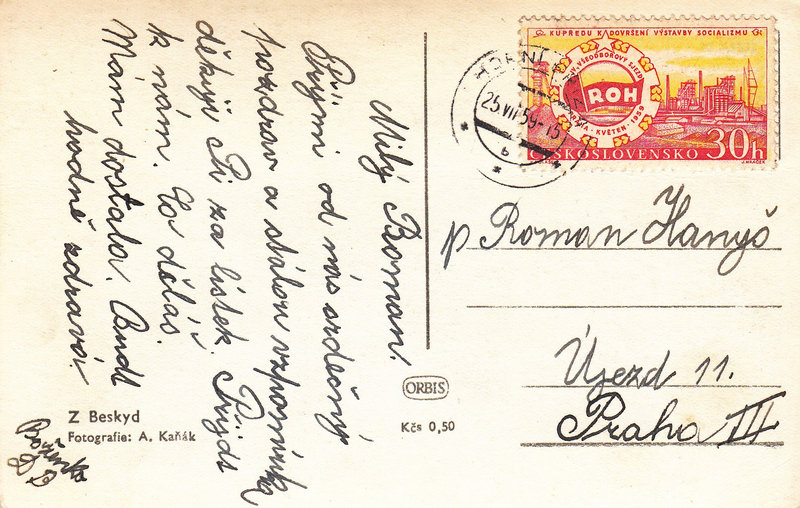 Milý Roman.
Přijmi od nás srdečný
pozdrav a stálou vzpomínku
děkuji Ti za lístek. Přijď
k nám. Co děláš.
Mám dostala. Buďt
hodně zdravá.
Boženka
Z Beskyd
Fotografie: A. Kaňák
ORBIS
Kčs 0,50
KUPŘEDU K DOVRŠENÍ VÝSTAVBY SOCIALIZMU
VŠEODBOROVÝ SJEZD
ROH
PRAHA - KVĚTEN - 1959
ČESKOSLOVENSKO 30h
HORNÍ
25.VII.59-15
b
p Roman Hanyš
Újezd 11.
Praha III